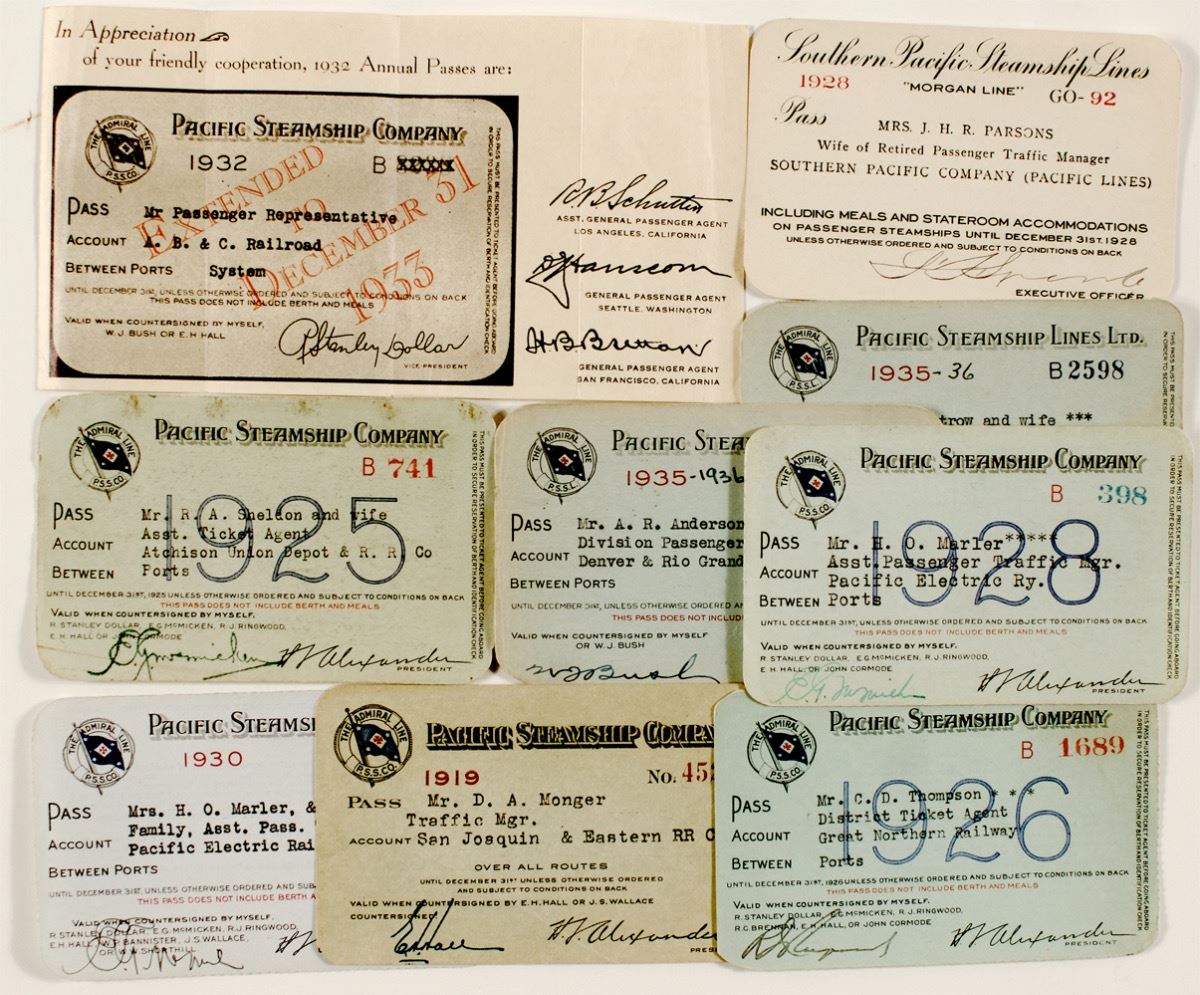 In Appreciation
of your friendly cooperation, 1932 Annual Passes are:
THE ADMIRAL LINE
P.S.S.CO.
PACIFIC STEAMSHIP COMPANY
1932 B XXXXXX
PASS Mr Passenger Representative
ACCOUNT A. B. & C. Railroad
BETWEEN PORTS System
UNTIL DECEMBER 31ST, UNLESS OTHERWISE ORDERED AND SUBJECT TO CONDITIONS ON BACK
THIS PASS DOES NOT INCLUDE BERTH AND MEALS
VALID WHEN COUNTERSIGNED BY MYSELF,
W. J. BUSH OR E. H. HALL
R Stanley Dollar
VICE-PRESIDENT
THIS PASS MUST BE PRESENTED TO TICKET AGENT BEFORE GOING ABOARD
IN ORDER TO SECURE RESERVATION OF BERTH AND IDENTIFICATION CHECK
EXTENDED
TO
DECEMBER 31
1933
ASST. GENERAL PASSENGER AGENT
LOS ANGELES, CALIFORNIA
GENERAL PASSENGER AGENT
SEATTLE, WASHINGTON
GENERAL PASSENGER AGENT
SAN FRANCISCO, CALIFORNIA
Southern Pacific Steamship Lines
1928 "MORGAN LINE" GO- 92
Pass
MRS. J. H. R. PARSONS
Wife of Retired Passenger Traffic Manager
SOUTHERN PACIFIC COMPANY (PACIFIC LINES)
INCLUDING MEALS AND STATEROOM ACCOMMODATIONS
ON PASSENGER STEAMSHIPS UNTIL DECEMBER 31ST, 1928
UNLESS OTHERWISE ORDERED AND SUBJECT TO CONDITIONS ON BACK
EXECUTIVE OFFICER
THE ADMIRAL LINE
P.S.S.L.
PACIFIC STEAMSHIP LINES LTD.
1935-36 B 2598
trow and wife ***
THIS PASS MUST BE PRESENTED
IN ORDER TO SECURE RESERVA
THE ADMIRAL LINE
P.S.S.CO.
PACIFIC STEAMSHIP COMPANY
B 741
1925
PASS Mr. R. A. Sheldon and wife
Asst. Ticket Agent
ACCOUNT Atchison Union Depot & R. R. Co
BETWEEN Ports
UNTIL DECEMBER 31ST, 1925 UNLESS OTHERWISE ORDERED AND SUBJECT TO CONDITIONS ON BACK
THIS PASS DOES NOT INCLUDE BERTH AND MEALS
VALID WHEN COUNTERSIGNED BY MYSELF,
R. STANLEY DOLLAR, E.G. McMICKEN, R. J. RINGWOOD,
E. H. HALL OR JOHN CORMODE
E. G. McMicken H. F. Alexander
PRESIDENT
THIS PASS MUST BE PRESENTED TO TICKET AGENT BEFORE GOING ABOARD
IN ORDER TO SECURE RESERVATION OF BERTH AND IDENTIFICATION CHECK
THE ADMIRAL LINE
P.S.S.L.
PACIFIC STEA
1935-1936
PASS Mr. A. R. Anderson
Division Passenger
ACCOUNT Denver & Rio Grand
BETWEEN PORTS
UNTIL DECEMBER 31ST, UNLESS OTHERWISE ORDERED A
THIS PASS DOES NOT INCLUD
VALID WHEN COUNTERSIGNED BY MYSELF
OR W. J. BUSH
W J Bush
THE ADMIRAL LINE
P.S.S.CO.
PACIFIC STEAMSHIP COMPANY
B 398
1928
PASS Mr. H. O. Marler*****
Asst. Passenger Traffic Mgr.
ACCOUNT Pacific Electric Ry.
BETWEEN Ports
UNTIL DECEMBER 31ST, 1928 UNLESS OTHERWISE ORDERED AND SUBJECT TO CONDITIONS ON BACK
THIS PASS DOES NOT INCLUDE BERTH AND MEALS
VALID WHEN COUNTERSIGNED BY MYSELF,
R. STANLEY DOLLAR, E.G. McMICKEN, R. J. RINGWOOD,
E. H. HALL, OR JOHN CORMODE
E. G. McMicken H. F. Alexander
PRESIDENT
THIS PASS MUST BE PRESENTED TO TICKET AGENT BEFORE GOING ABOARD
IN ORDER TO SECURE RESERVATION OF BERTH AND IDENTIFICATION CHECK
THE ADMIRAL LINE
P.S.S.CO.
PACIFIC STEAMSH
1930
PASS Mrs. H. O. Marler, &
Family, Asst. Pass.
ACCOUNT Pacific Electric Rai
BETWEEN PORTS
UNTIL DECEMBER 31ST, UNLESS OTHERWISE ORDERED AND SUB
THIS PASS DOES NOT INCLUDE BERTH A
VALID WHEN COUNTERSIGNED BY MYSELF,
R. STANLEY DOLLAR, E.G. McMICKEN, R. J. RINGWOOD,
E. H. HALL, W. P. BANNISTER, J. S. WALLACE,
THE ADMIRAL LINE
P.S.S.CO.
PACIFIC STEAMSHIP COMPAN
1919 No. 452
PASS Mr. D. A. Monger
Traffic Mgr.
ACCOUNT San Josquin & Eastern RR C
OVER ALL ROUTES
UNTIL DECEMBER 31ST UNLESS OTHERWISE ORDERED
AND SUBJECT TO CONDITIONS ON BACK
VALID WHEN COUNTERSIGNED BY E. H. HALL OR J. S. WALLACE
COUNTERSIGNED
E. H. Hall H. F. Alexander
PRES
THE ADMIRAL LINE
P.S.S.CO.
PACIFIC STEAMSHIP COMPANY
B 1689
1926
PASS Mr. C. D. Thompson * * *
District Ticket Agent
ACCOUNT Great Northern Railway
BETWEEN Ports
UNTIL DECEMBER 31ST, 1926 UNLESS OTHERWISE ORDERED AND SUBJECT TO CONDITIONS ON BACK
THIS PASS DOES NOT INCLUDE BERTH AND MEALS
VALID WHEN COUNTERSIGNED BY MYSELF,
R. STANLEY DOLLAR, E.G. McMICKEN, R. J. RINGWOOD,
R. G. BRENNAN, E. H. HALL, OR JOHN CORMODE
H. F. Alexander
PRESIDENT
THIS PASS MUST BE PRESENTED TO TICKET AGENT BEFORE GOING ABOARD
IN ORDER TO SECURE RESERVATION OF BERTH AND IDENTIFICATION CHECK